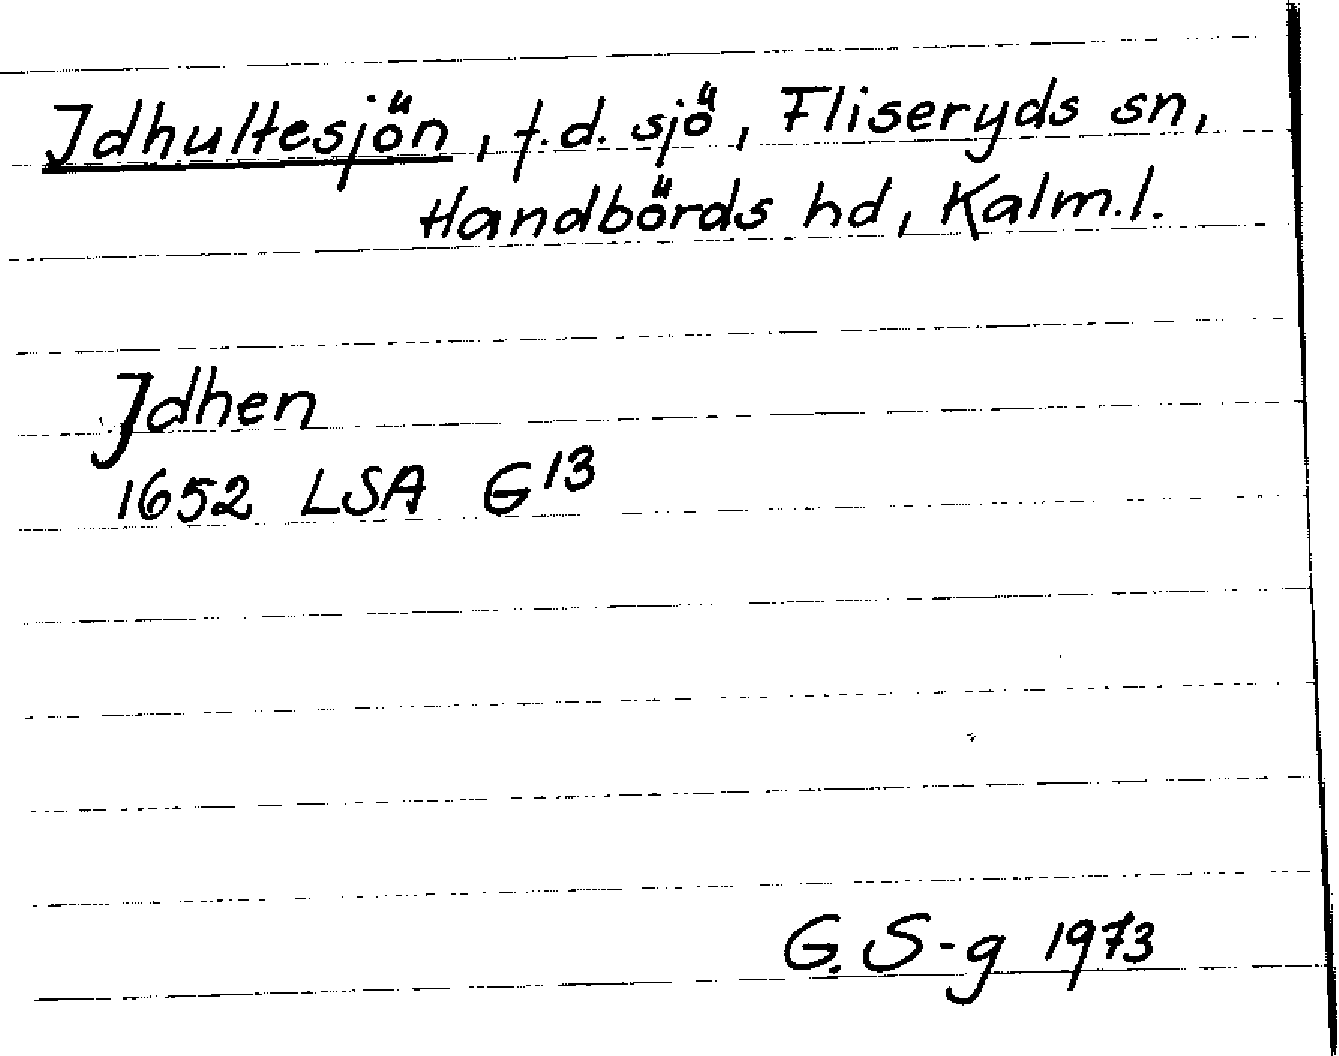 Idhultesjön, f.d. sjö, Fliseryds sn,
Handbörds hd, Kalm.l.
Jdhen
1652 LSA G¹³
G. S-g 1973